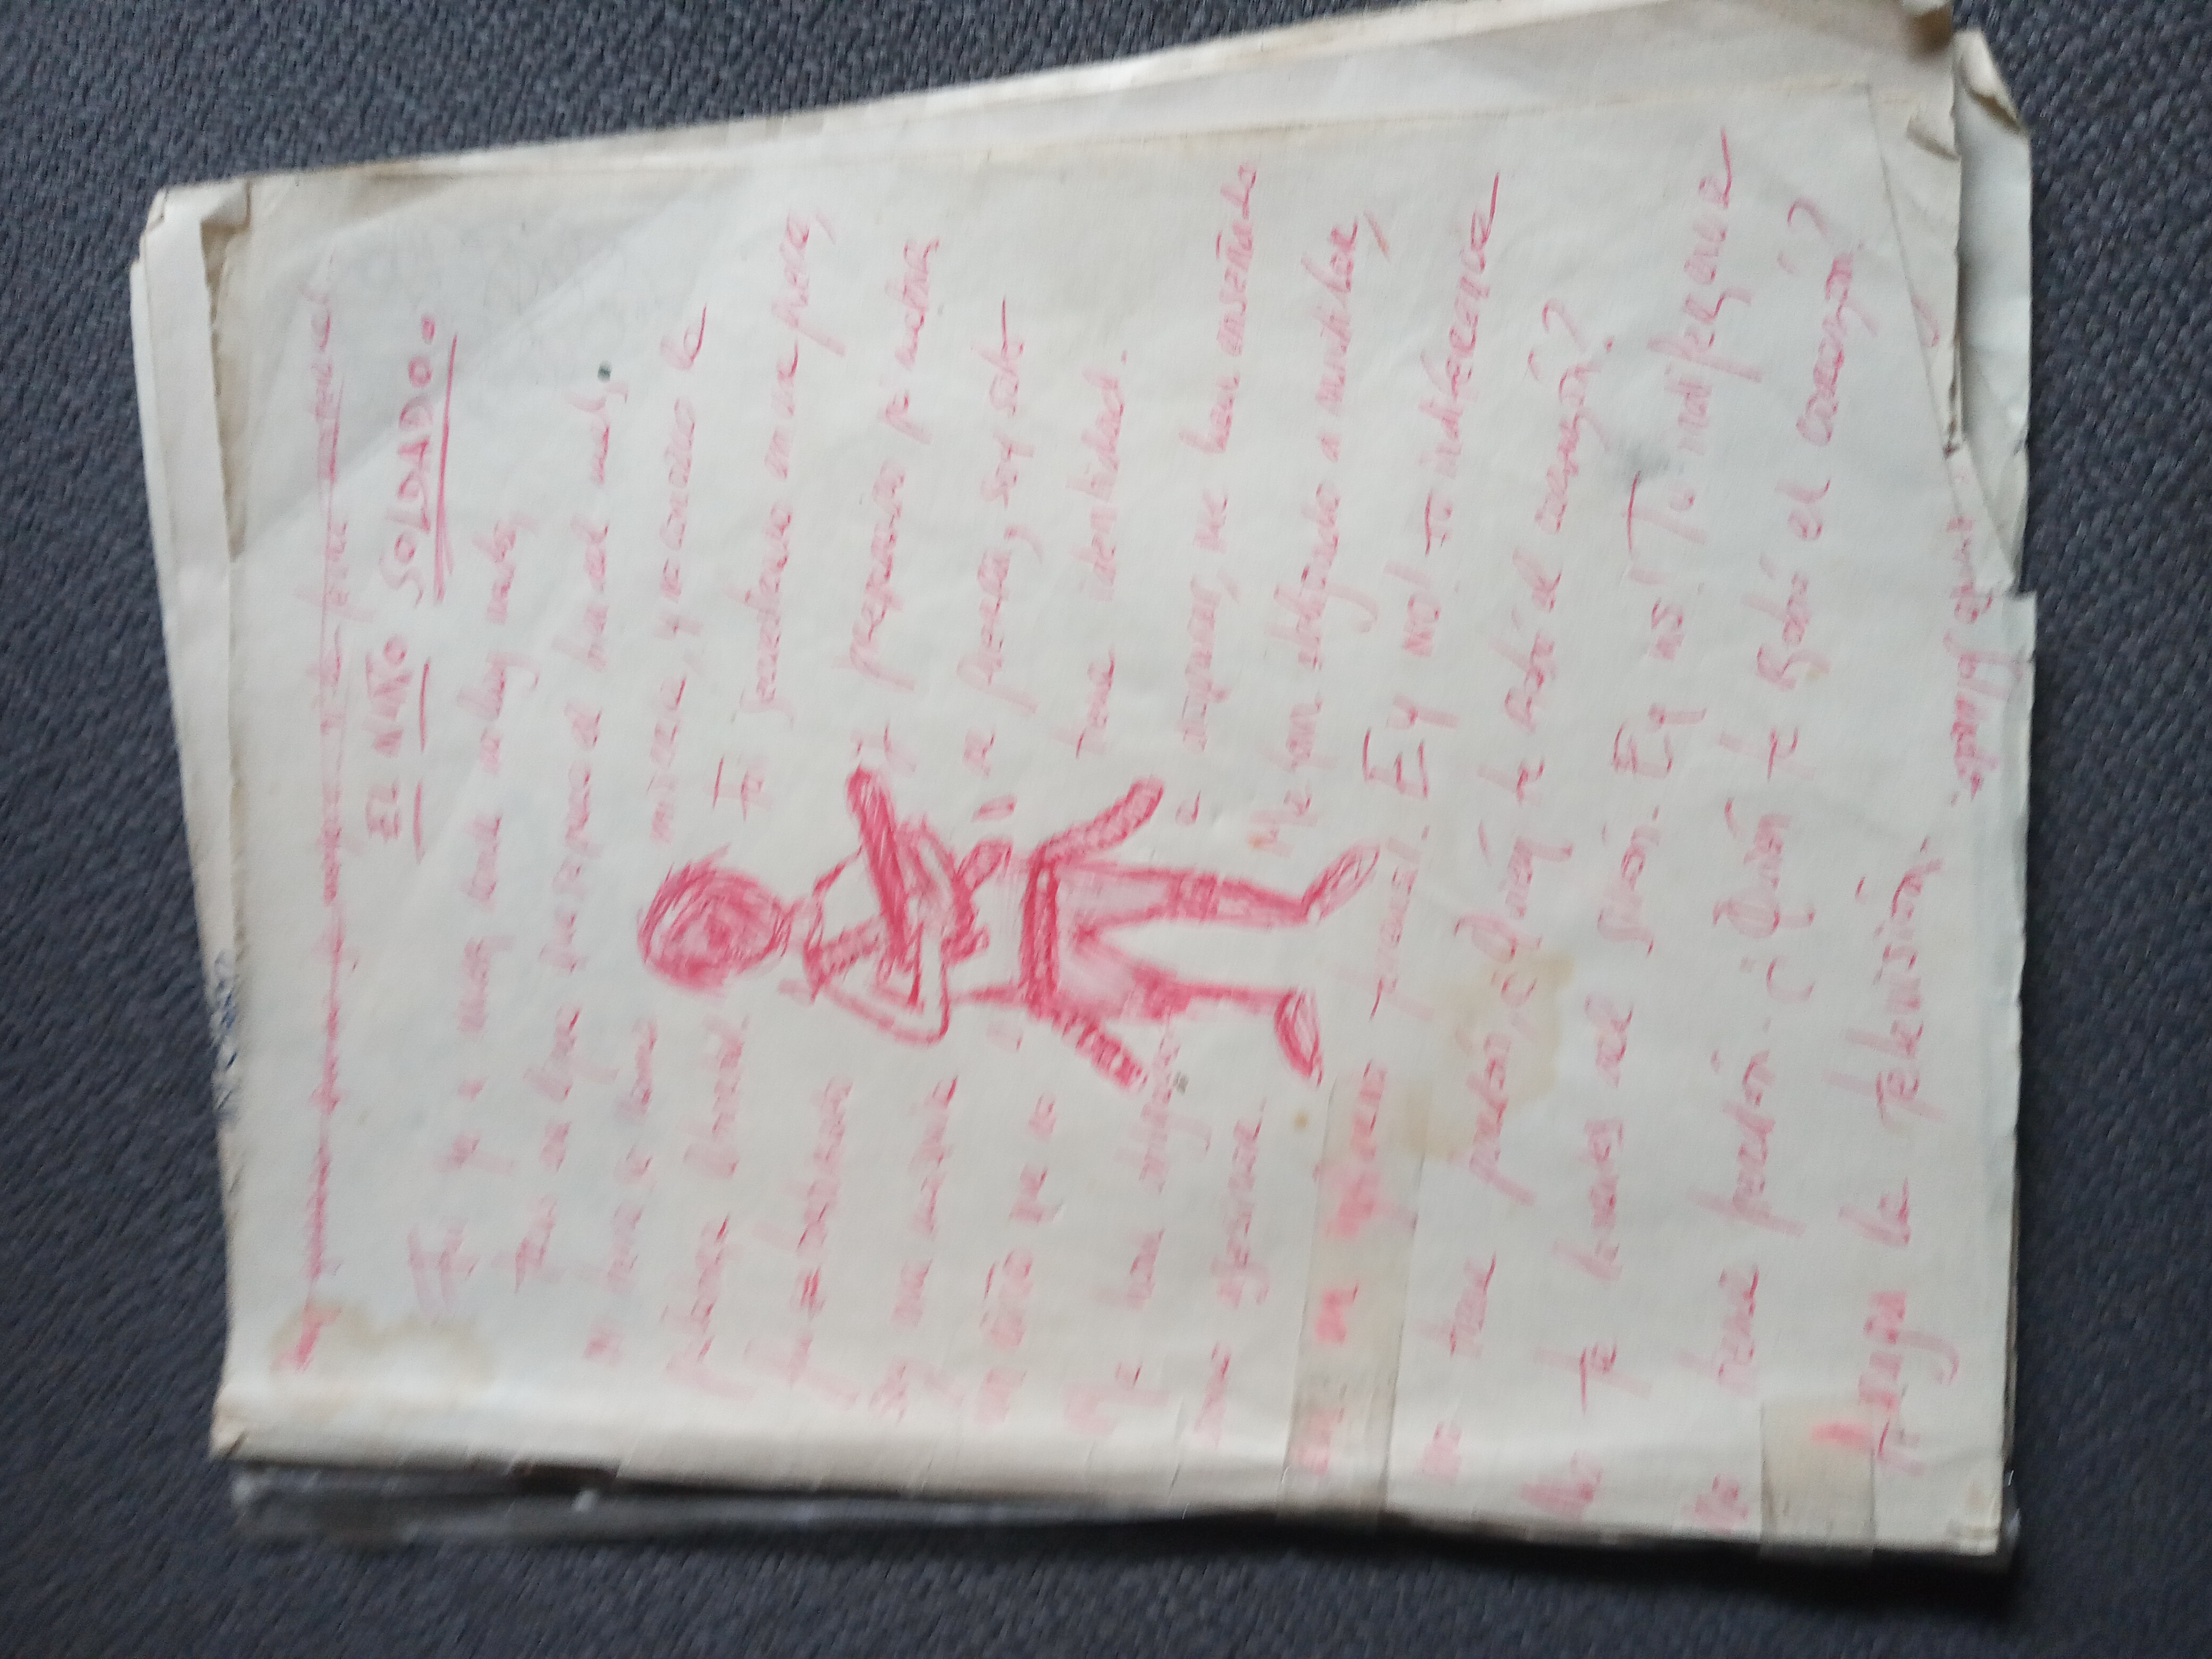 EL NIÑO SOLDADO.
no hay
que separa el bien del mal,
mi tierra se llama miseria, y no conozco la
palabra libertad. Fui secuestrado en una guerra,
Fui entrenado y preparado pa matar,
soy una máquina de guerra, soy solo
un niño que no tiene identidad.
Me han obligado a disparar, me han enseñado
como asesinar. Me han obligado a mutilar,
en un infierno terrenal. Ey no! tu indiferencia
no tiene perdón, ¿Quién te robó el corazón?
No te levantes del sillón. Ey no! Tu indiferencia
no tiene perdón. ¿Quién te Robó el corazón?
Apaga la televisión.